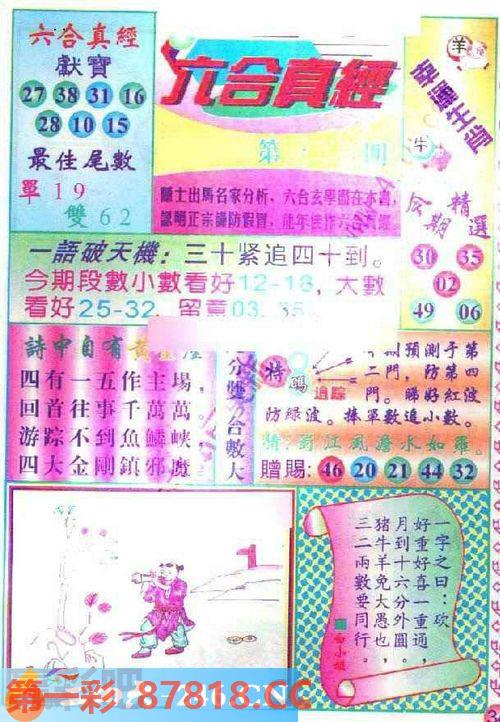 六合真經
獻寶
27 38 31 16
28 10 15
最佳尾數
單19
雙62
六合真經
第
期
隱士出馬名家分析，六合玄學盡在本書，
認明正宗謹防假冒，
羊
幸運生肖
牛
精選
30 35
02
49 06
一語破天機：三十紧追四十到。
今期段數小數看好12-18，大數
看好25-32，留意03.35
詩中自有黃金屋
四有一五作主場，
回首往事千萬萬。
游踪不到魚鱗峽，
四大金剛鎮邪魔
分雙合數大
特碼
追踪
期預測于第
二門，防第四
門。睇好紅波
防綠波。捧單數追小數。
猜：蜀江風澹水如羅。
贈賜：46 20 21 44 32
一字之曰：砍
好重好喜一重通，
月到十六分外圓，
猪牛羊兔大愚也，
三二兩數要同行。
白小姐
第一彩 87818.CC